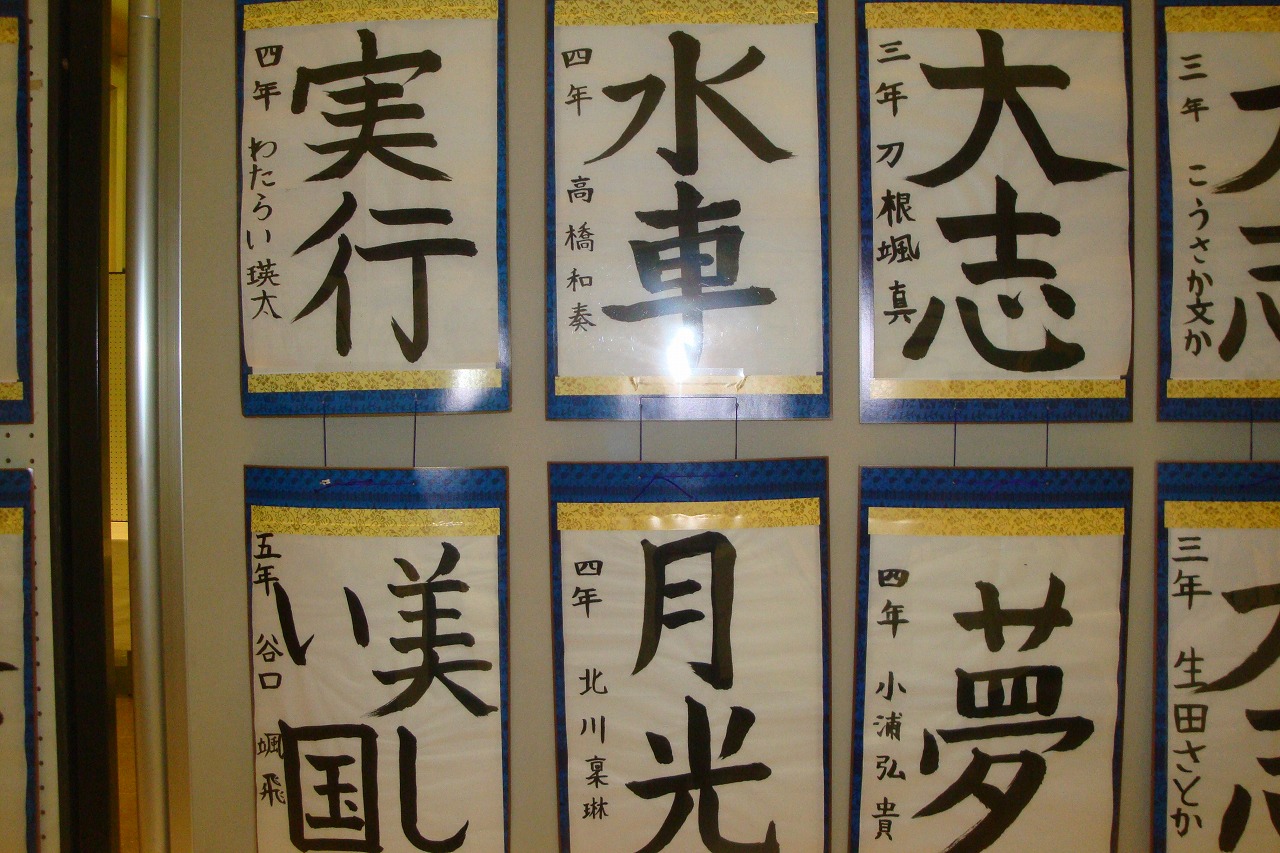 実行
四年 わたらい瑛太
水車
四年 高橋和奏
大志
三年 刀根颯真
三年 こうさか文か
美し
い国
五年 谷口颯飛
月光
四年 北川稟琳
夢
四年 小浦弘貴
三年 生田さとか